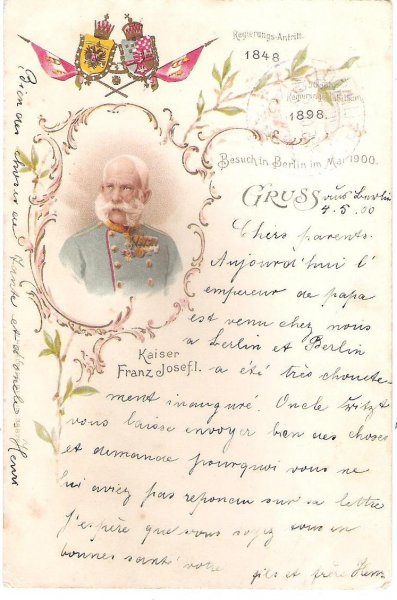 Regierungs-Antritt.
1848
Regierungs-Jubiläum
1898.
Besuch in Berlin im Mai 1900.
GRUSS aus Berlin
4.5.00
Kaiser
Franz Josef I.
Chers parents.
Aujourd'hui l'
empereur de papa
est venu chez nous
a Berlin et Berlin
a été très chouete-
ment inauguré. Oncle
vous laisse envoyer bien des choses
et demande pourquoi vous ne
lui aviez pas reponeu sur sa lettre
J'espère que vous soyez tous en
bonnes santé votre
fils et frère Henri
Bien des choses de Tante et d'oncle Henri